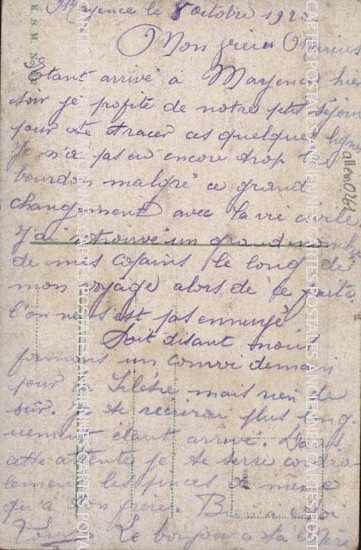 Mayence le 8 octobre 192
Mon frère
Etant arrivé à Mayence hier
soir je profite de notre petit séjour
pour te tracer ces quelques lignes
Je n'ai pas eu encore trop le
bourdon malgré ce grand
changement avec la vie civile.
J'ai retrouvé un grand
de mes copains le long de
mon voyage alors de ce fait
l'on ne s'est pas ennuyé
Soit disant nous
formons un convoi demain
pour la Silésie mais rien de
sûr. Je te recrirai plus long
uement étant arrivé. Dans
cette attente je te serre cordia
lement les pinces de même
qu'à mon frère. Bien à toi
Le bonjour à ta
K S M
allem014
CARTES POSTALES ANCIENNES